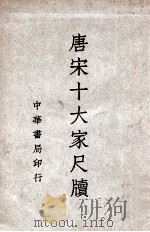 唐宋十大家尺牘
中華書局印行
www.duxiu.com